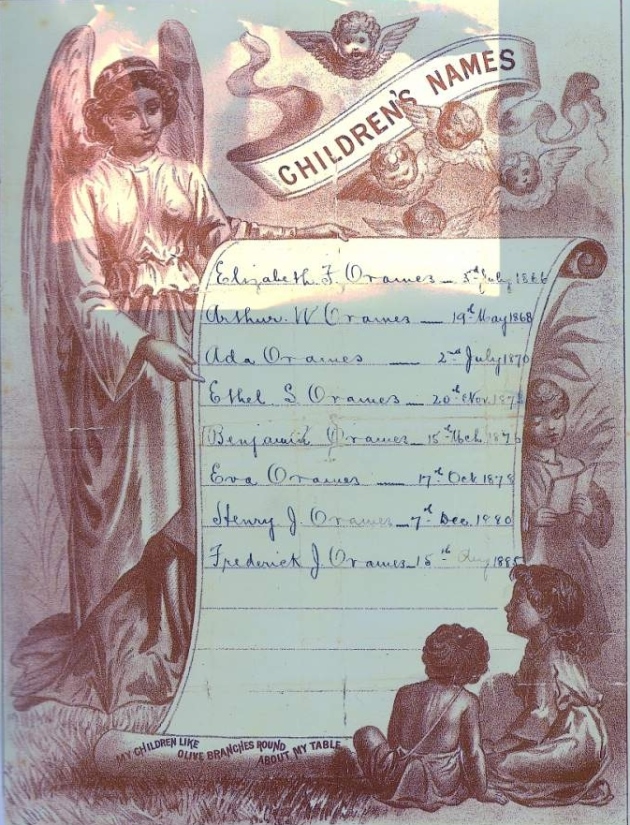 CHILDREN'S NAMES
Elizabeth F Orames — 5th July 1866
Arthur W Orames — 19th May 1868
Ada Orames — 2nd July 1870
Ethel S Orames — 20th Nov 187
Benjamin Orames — 15th Mch 1876
Eva Orames — 17th Oct 1878
Henry J. Orames — 7th Dec. 1880
Frederick J. Orames — 15th Aug 1885
MY CHILDREN LIKE
OLIVE BRANCHES ROUND
ABOUT MY TABLE